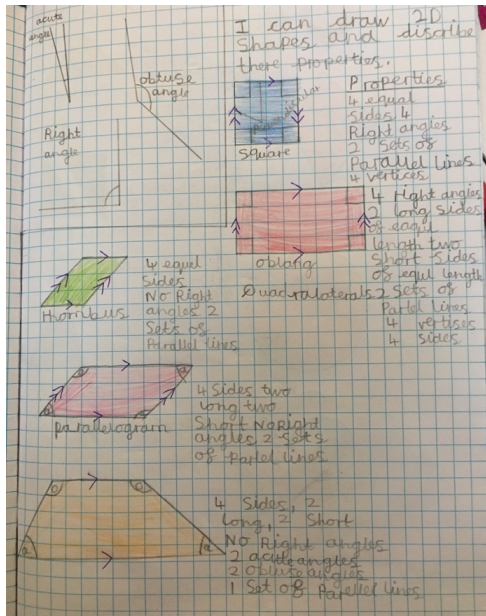 acute
angle
obtuse
angle
Right
angle
I can draw 2D
shapes and discribe
there properties.
Perpendicular
Square
Properties
4 equal
sides 4
Right angles
2 sets of
Parallel lines
4 vertices
oblang
4 right angles
2 long sides
of eaqul
length two
short sides
of equl length
Quadralaterals 2 sets of
Partel lines
4 vertises
4 sides
Rhombus
4 equel
sides
No Right
angles 2
Sets of
Parallel lines
o
a
a
o
parallelogram
4 Sides two
long two
Short No Right
angles 2 sets
of Partel lines
o
o
a
a
4 Sides, 2
long, 2 Short
No Right angles
2 acute angles
2 obtuse angles
1 Set of Parellel lines